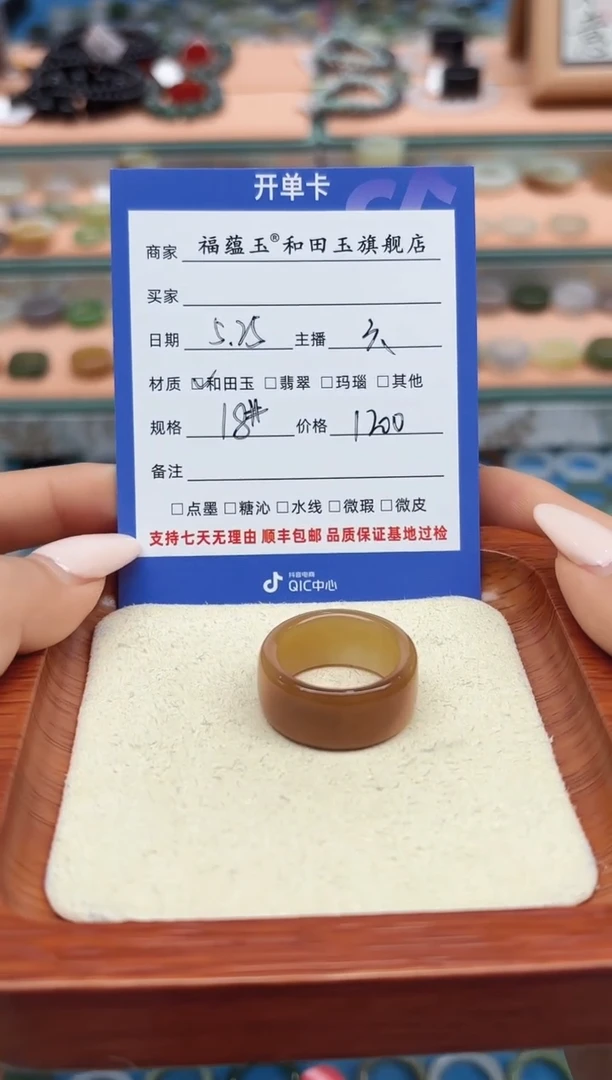 开单卡
商家 福蕴玉®和田玉旗舰店
买家
日期 5.25 主播
材质 ☑和田玉 □翡翠 □玛瑙 □其他
规格 18# 价格 1200
备注
□点墨 □糖沁 □水线 □微瑕 □微皮
支持七天无理由 顺丰包邮 品质保证基地过检
抖音电商
QIC中心